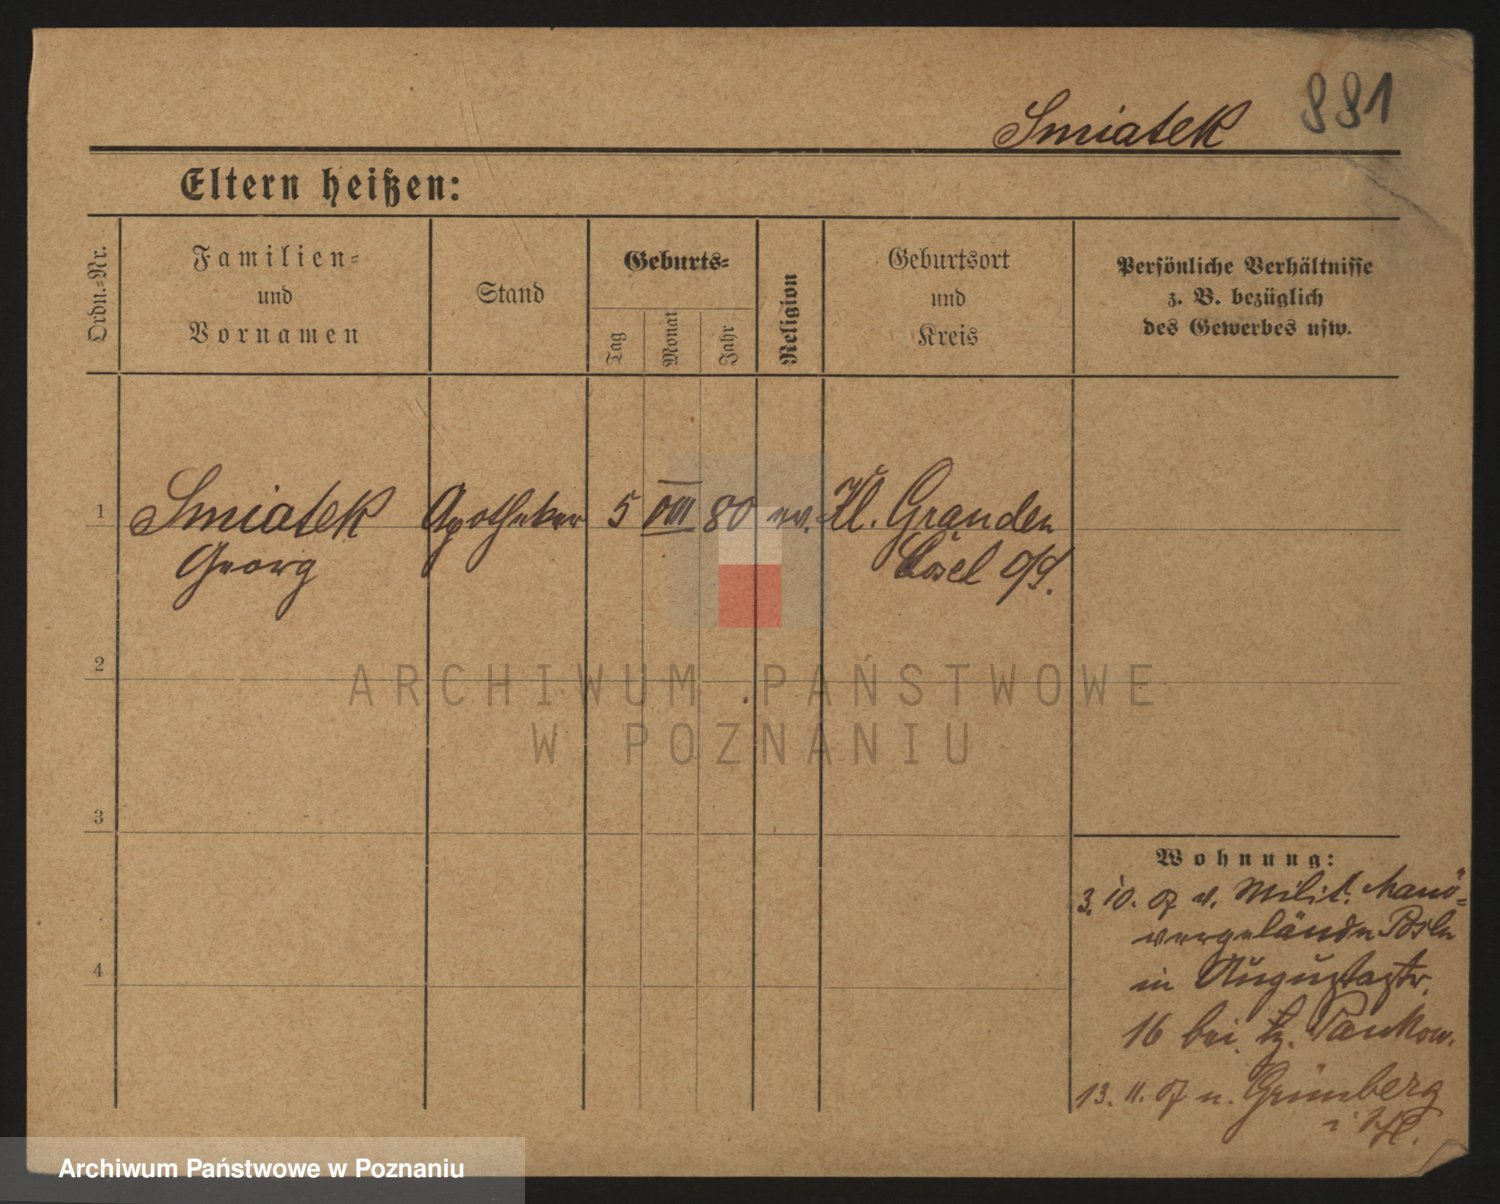 Smiatek 881
Eltern heißen:
Ordn.-Nr.
Familien-
und
Vornamen
Stand
Geburts-
Tag
Monat
Jahr
Religion
Geburtsort
und
Kreis
Persönliche Verhältnisse
z. B. bezüglich
des Gewerbes usw.
1 Smiatek Apotheker 5 VIII 80 ev. Kl. Grauden
Georg Cosel O/S.
2
ARCHIWUM PAŃSTWOWE
W POZNANIU
3
Wohnung:
3. 10. 07 v. Milit. Manö-
vergelände Posen
in Augustastr.
16 bei Pankow.
4
13. 11. 07 n. Grünberg
i/Schl.
Archiwum Państwowe w Poznaniu